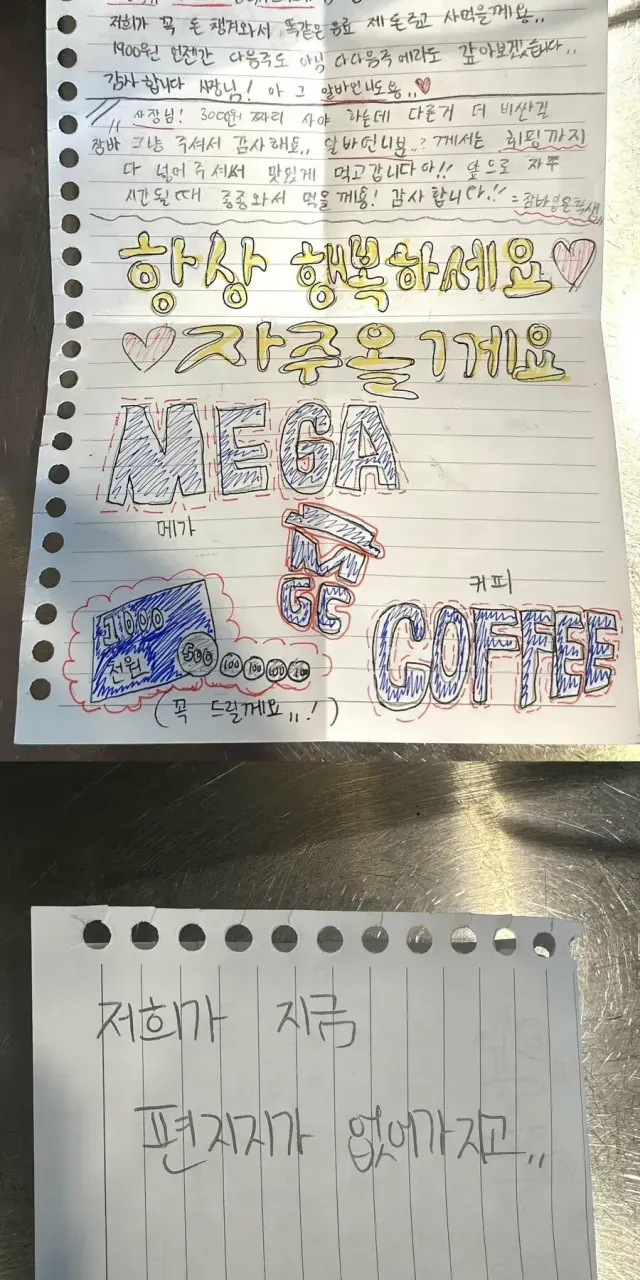 저희가 꼭 돈 챙겨와서 똑같은 음료 제 돈주고 사먹을께요..
1900원 언젠간 다음주도 아님 다다음주에라도 갚아보겠습니다..
감사합니다 사장님! 아 그 알바언니도용..♥
사장님! 3000원 짜리 사야 하는데 다른거 더 비싼걸
그냥 주셔서 감사해요.. 알바언니분..? 께서는 휘핑까지
다 넣어 주셔서 맛있게 먹고갑니다아!! 앞으로 자주
시간될때 종종와서 먹을께용! 감사합니다!!
항상 행복하세요♡
♡자주올게요
MEGA
메가
M
GC
커피
COFFEE
1000
천원
500 100 100 100 100
(꼭 드릴께요,,!)
저희가 지금
편지지가 없어가지고,,